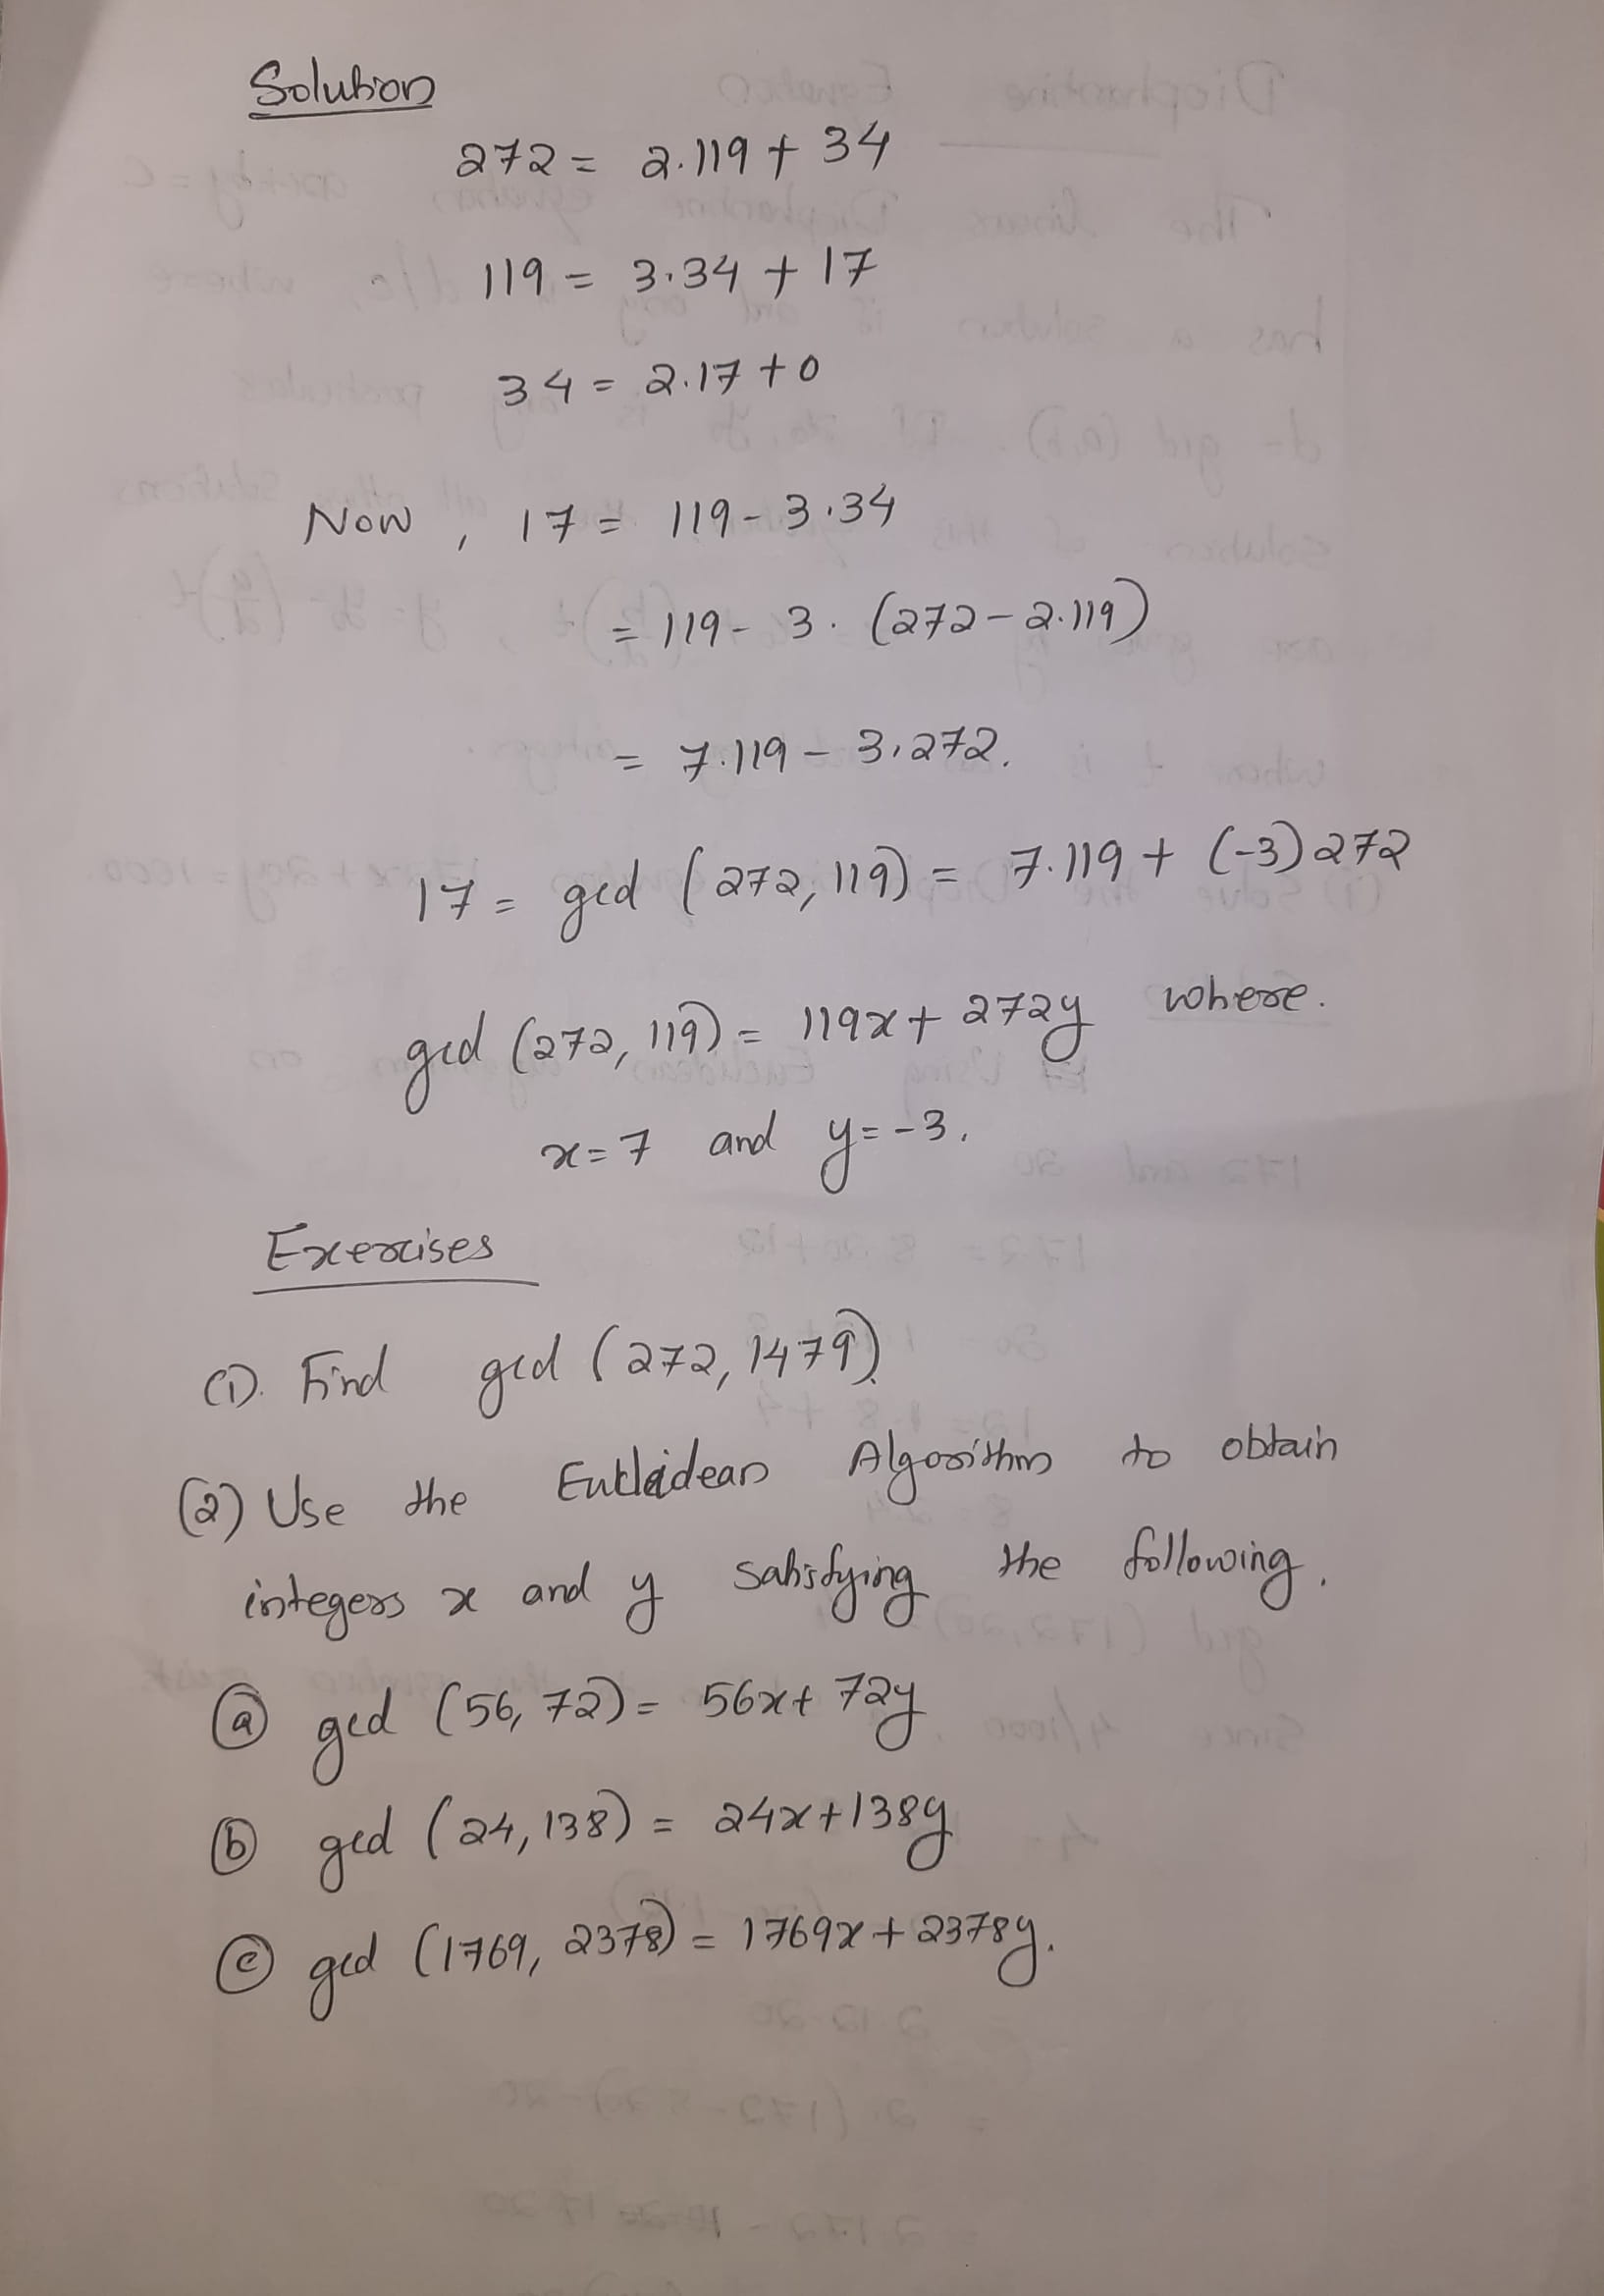 Solution
272 = 2.119 + 34
119 = 3.34 + 17
34 = 2.17 + 0
Now, 17 = 119 - 3.34
= 119 - 3. (272 - 2.119)
= 7.119 - 3.272.
17 = gcd (272, 119) = 7.119 + (-3) 272
gcd (272, 119) = 119x + 272y where.
x = 7 and y = -3.
Exercises
(1). Find gcd (272, 1479).
(2) Use the Euclidean Algorithm to obtain
integers x and y satisfying the following.
(a) gcd (56, 72) = 56x + 72y
(b) gcd (24, 138) = 24x + 138y
(c) gcd (1769, 2378) = 1769x + 2378y.